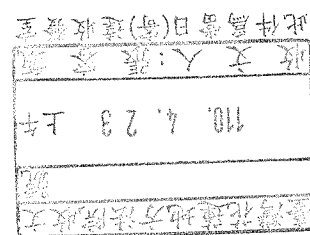 臺灣花蓮地方法院收文
110. 4. 23 上午
收文人：張
此件為當日(寄)達收發室